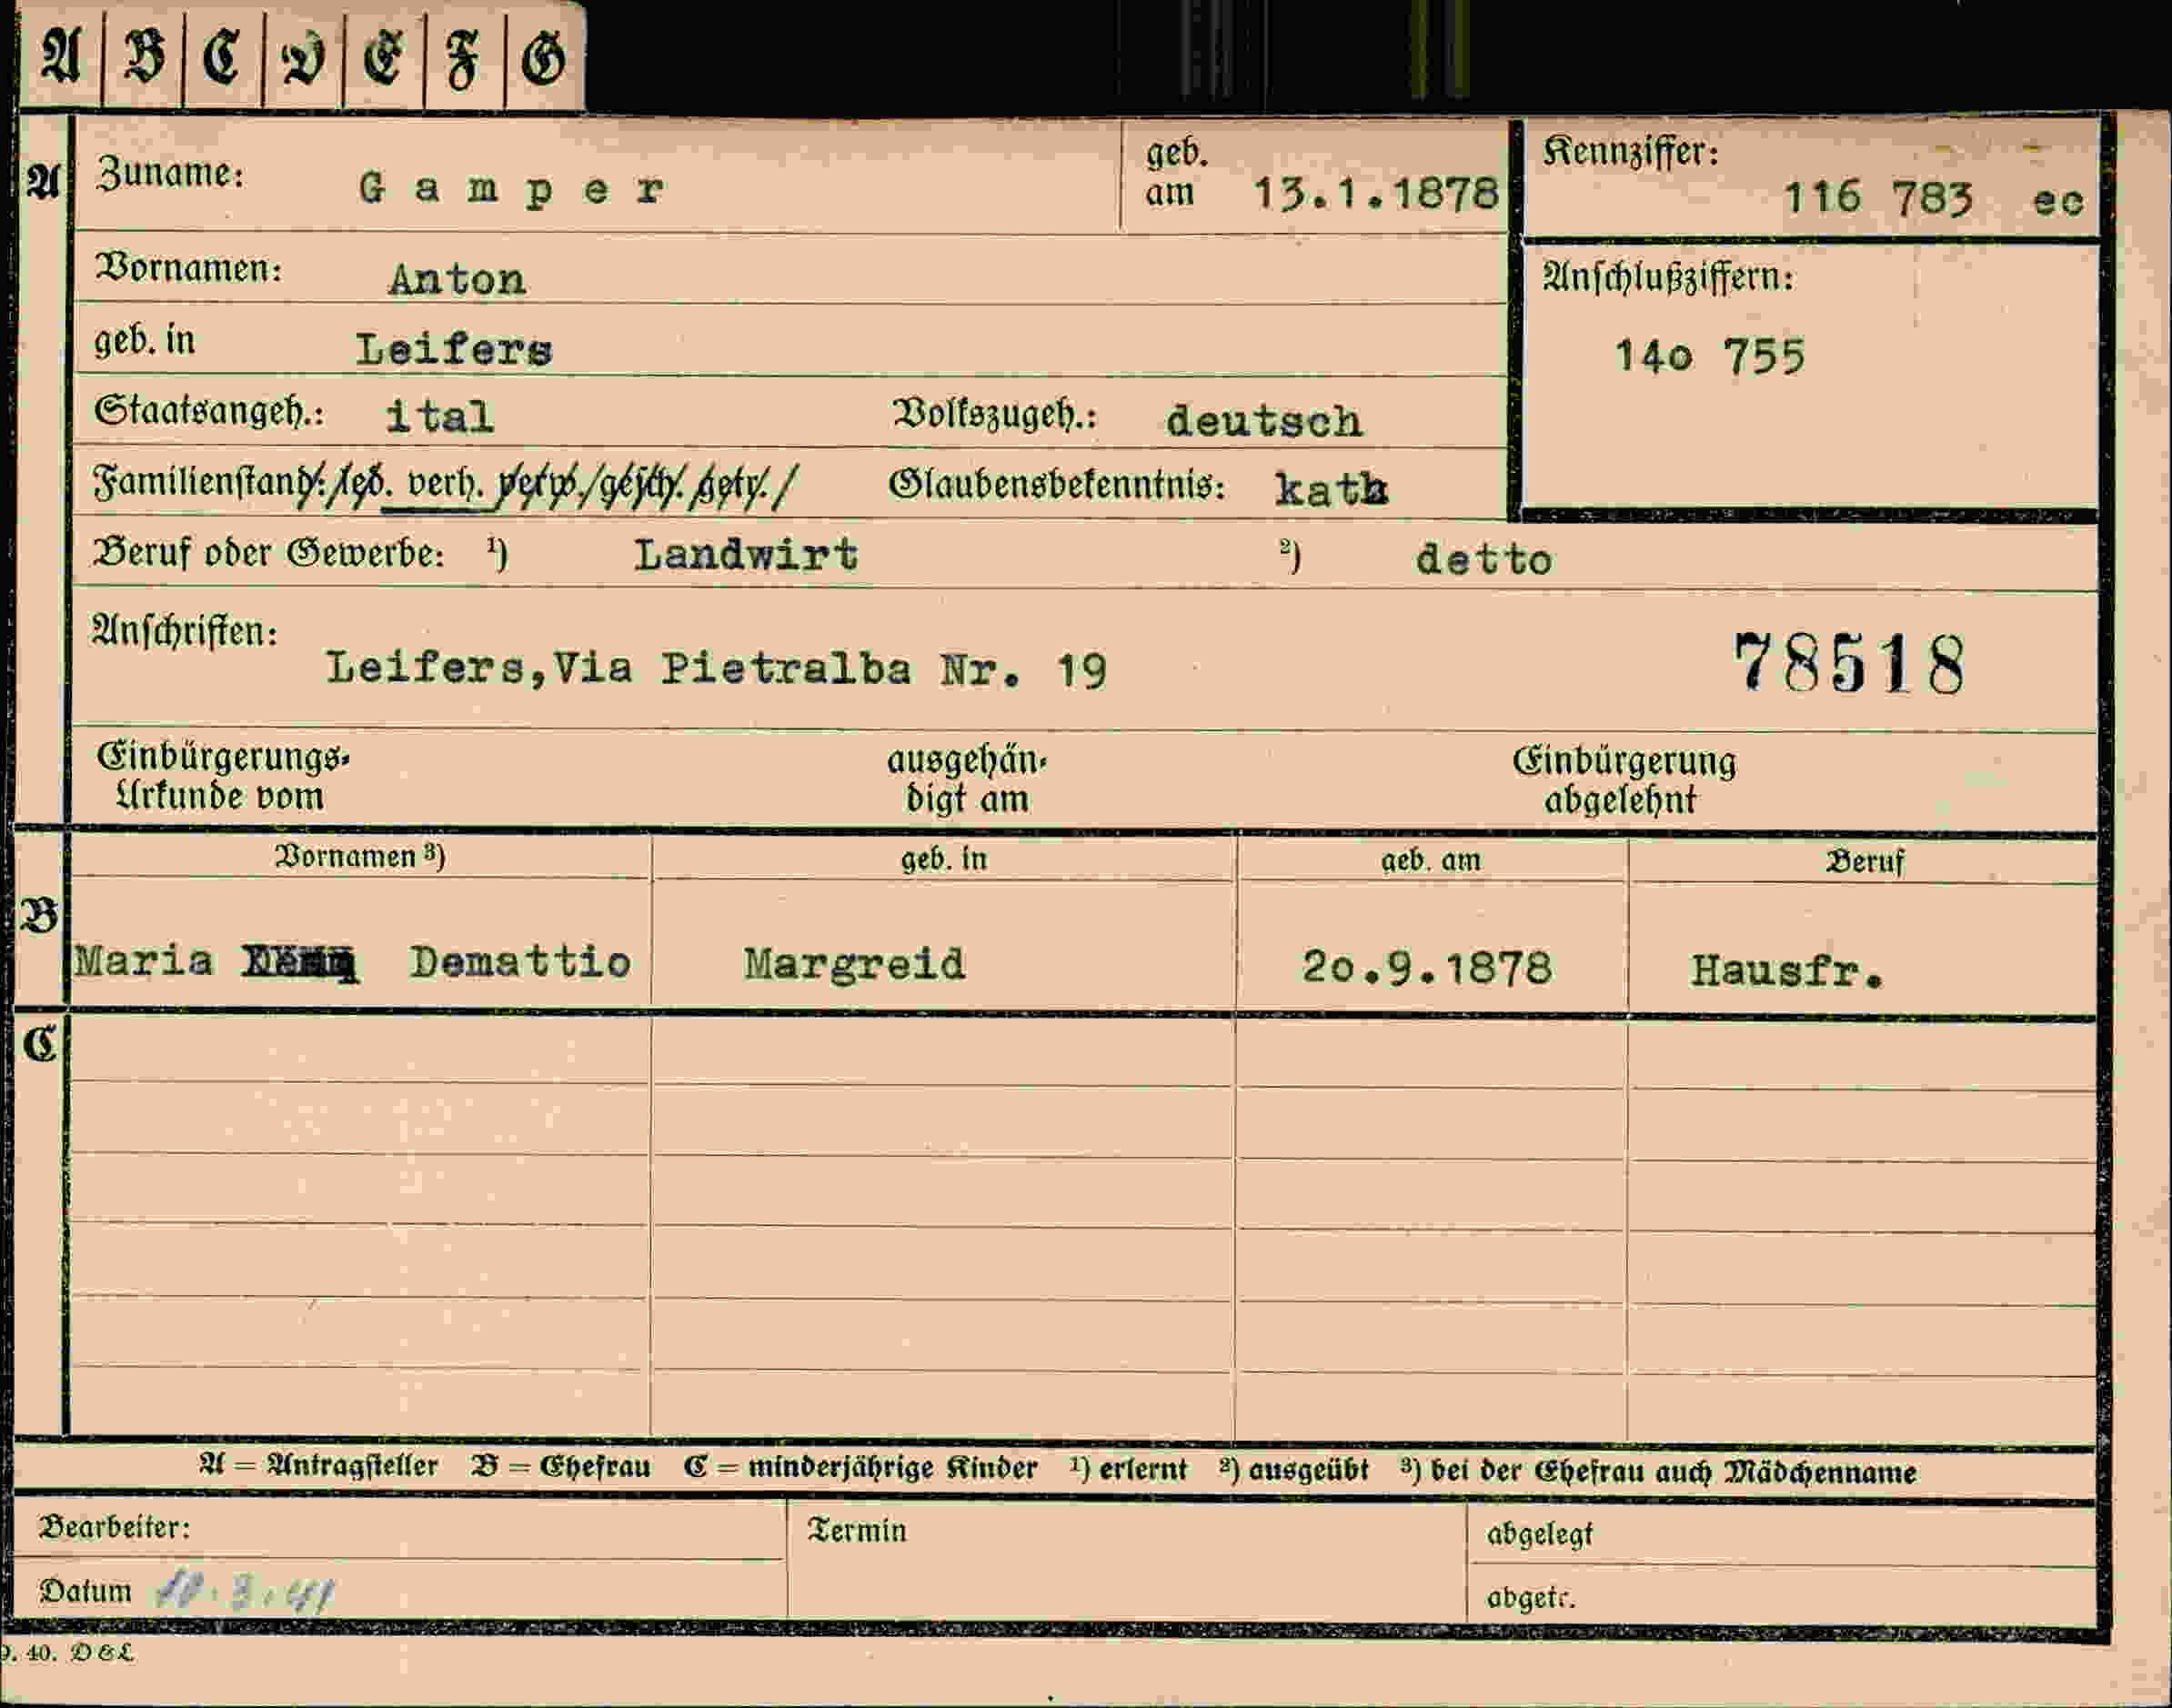 A B C D E F G
A Zuname: Gamper geb. am 13.1.1878 Kennziffer: 116 783 ec
Vornamen: Anton Anschlußziffern:
geb. in Leifers 14o 755
Staatsangeh.: ital Volkszugeh.: deutsch
Familienstand: led. verh. verw. gesch. getr. Glaubensbekenntnis: kath
Beruf oder Gewerbe: ¹) Landwirt ²) detto
Anschriften: Leifers,Via Pietralba Nr. 19 78518
Einbürgerungs- ausgehän- Einbürgerung
Urkunde vom digt am abgelehnt
Vornamen ³) geb. in geb. am Beruf
B Maria Demattio Margreid 2o.9.1878 Hausfr.
C
A = Antragsteller B = Ehefrau C = minderjährige Kinder ¹) erlernt ²) ausgeübt ³) bei der Ehefrau auch Mädchenname
Bearbeiter: Termin abgelegt
Datum 10.3.41 abgetr.
9. 40. D&L